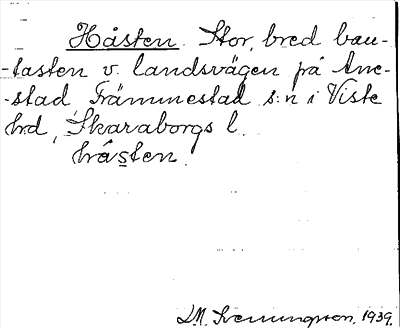 Håsten. Stor, bred bau-
-tasten v. landsvägen på Ane-
-stad, Främmestad s:n i Viste
hrd, Skaraborgs l.
hås̲ten.
L.M. Svenungsson, 1939.